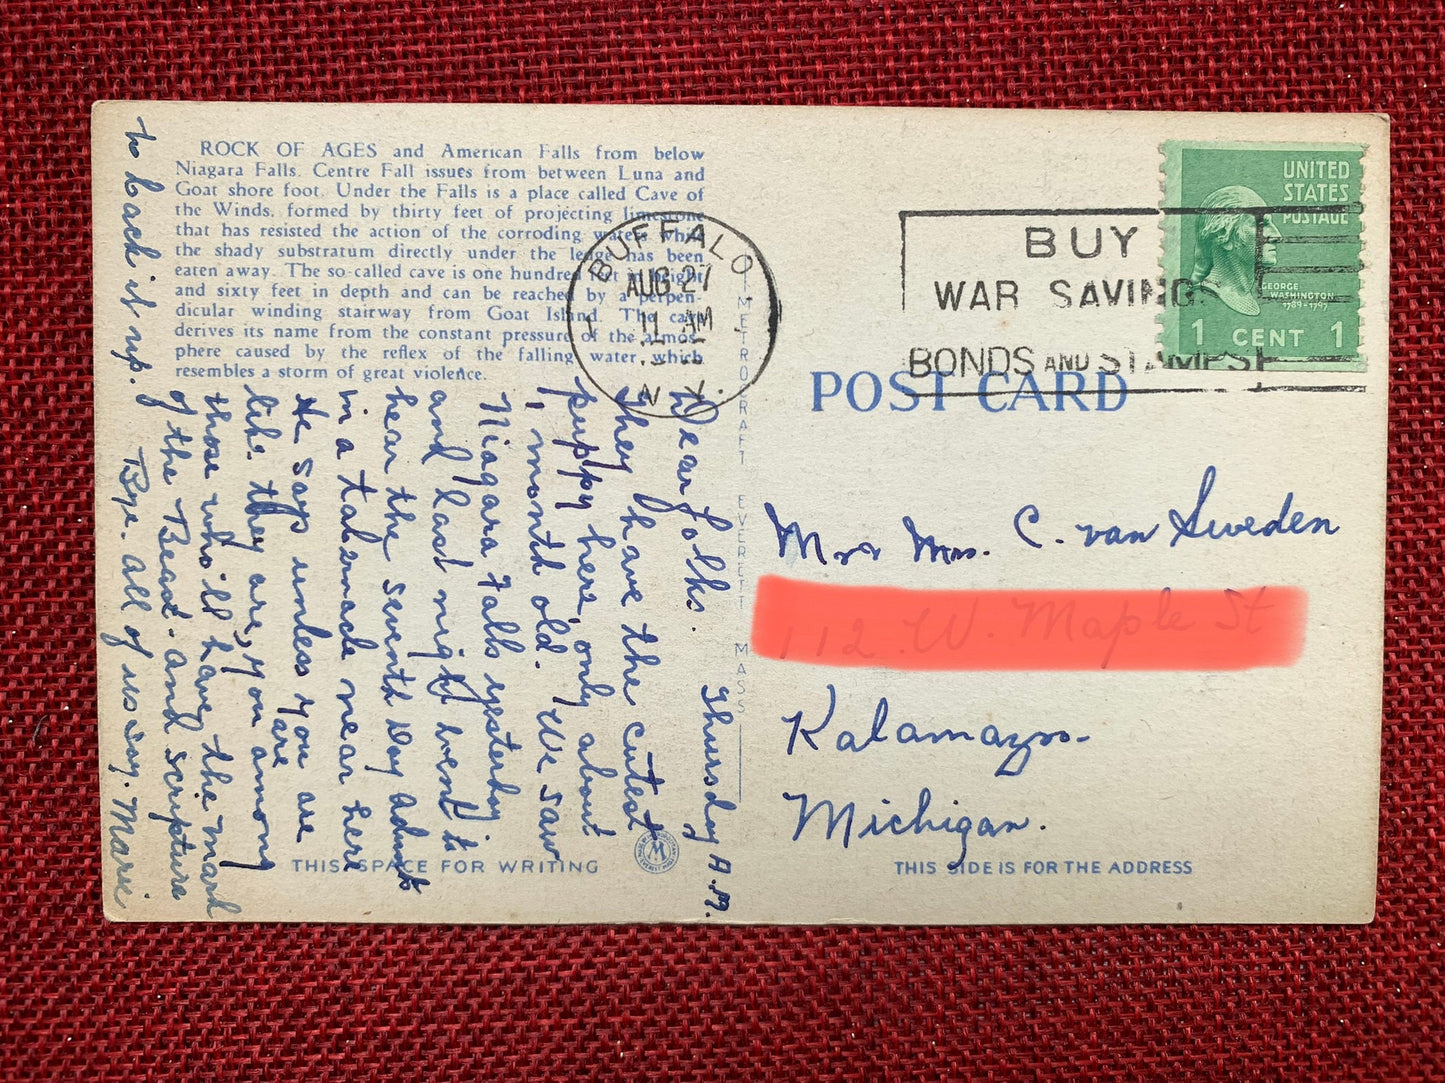 ROCK OF AGES and American Falls from below
Niagara Falls. Centre Fall issues from between Luna and
Goat shore foot. Under the Falls is a place called Cave of
the Winds, formed by thirty feet of projecting limestone
that has resisted the action of the corroding waters which
the shady substratum directly under the ledge has been
eaten away. The so-called cave is one hundred feet in height
and sixty feet in depth and can be reached by a perpen-
dicular winding stairway from Goat Island. The cave
derives its name from the constant pressure of the atmos-
phere caused by the reflex of the falling water, which
resembles a storm of great violence.
Thursday A.M.
Dear folks.
They have the cutest
puppy here, only about
1 month old. We saw
Niagara Falls yesterday
and last night went to
hear the Seventh Day Advent
in a tabernacle near here
He says unless you are
like they are, you are among
those who'll have the mark
of the Beast. and scripture
to back it up.
Bye. All of us say. Marie
THIS SPACE FOR WRITING
METROCRAFT EVERETT MASS
M
BUFFALO
AUG 27
11 AM
N.Y.
BUY
WAR SAVINGS
BONDS AND STAMPS
UNITED
STATES
POSTAGE
GEORGE
WASHINGTON
1789-1797
1 CENT 1
POST CARD
Mr & Mrs. C. van Sweden
W. Maple St
Kalamazoo-
Michigan.
THIS SIDE IS FOR THE ADDRESS